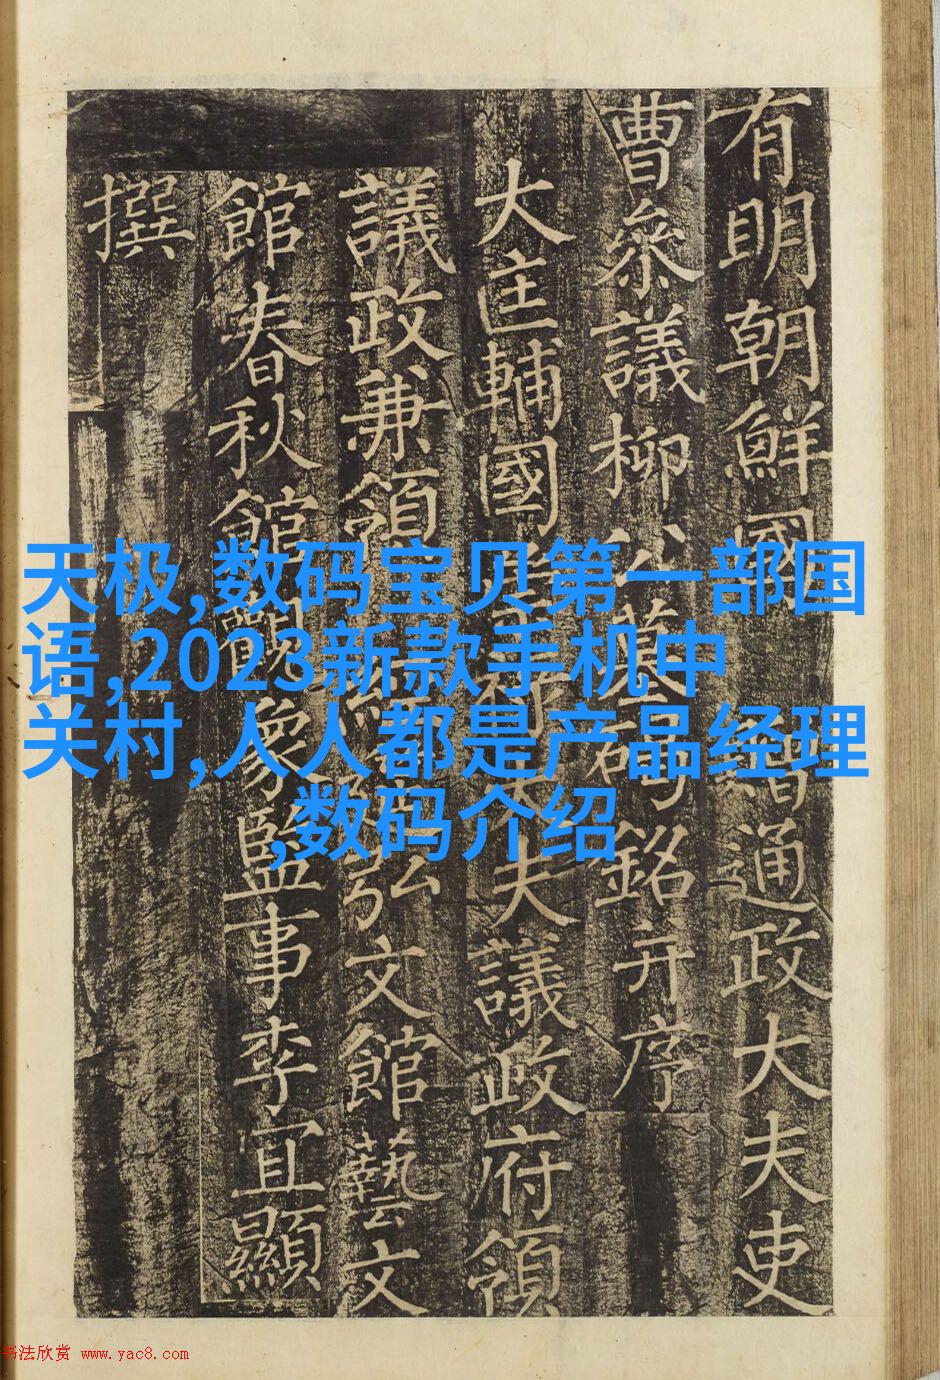 有明朝鮮國贈通政大夫吏
曹參議柳公墓碣銘并序
大匡輔國崇祿大夫議政府領
議政兼領經筵弘文館藝文
館春秋館觀象監事李宜顯
撰
天极,数码宝贝第一部国
语,2023新款手机中
关村,人人都是产品经理
,数码介绍
书法欣赏 www.yac8.com